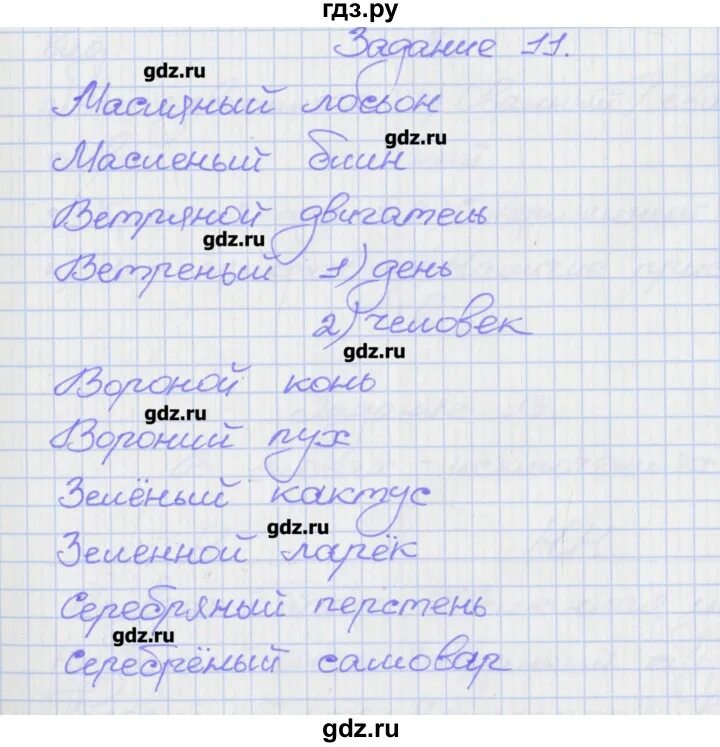 гдз.ру
Задание 11.
gdz.ru
Масляный лосьон
gdz.ru
Масленый блин
Ветряной двигатель
gdz.ru
Ветреный 1) день
2) человек
gdz.ru
Вороной конь
gdz.ru
Вороний пух
Зелёный кактус
gdz.ru
Зеленной ларёк
Серебряный перстень
gdz.ru
Серебрёный самовар
gdz.ru